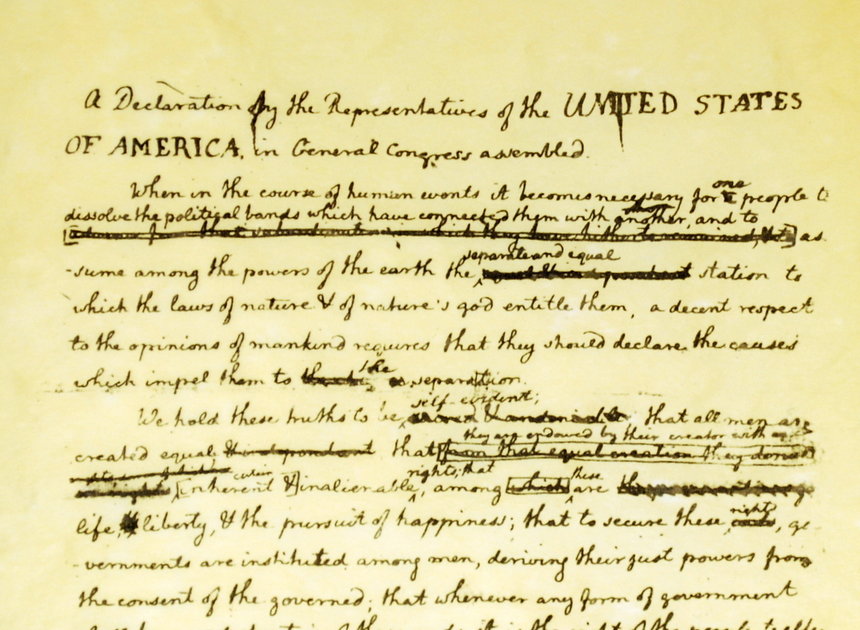 A Declaration by the Representatives of the UNITED STATES
OF AMERICA, in General Congress assembled.
When in the course of human events it becomes necessary for one people to
dissolve the political bands which have connected them with another, and to
as
separate and equal
-sume among the powers of the earth the station to
which the laws of nature & of nature's god entitle them, a decent respect
to the opinions of mankind requires that they should declare the causes
the
which impel them to separation.
self-evident;
We hold these truths to be that all men are
they are endowed by their creator with
created equal & independent that from that equal creation they derive
rights; that
inherent & inalienable, among which these are
life, liberty, & the pursuit of happiness; that to secure these rights, go
-vernments are instituted among men, deriving their just powers from
the consent of the governed; that whenever any form of government